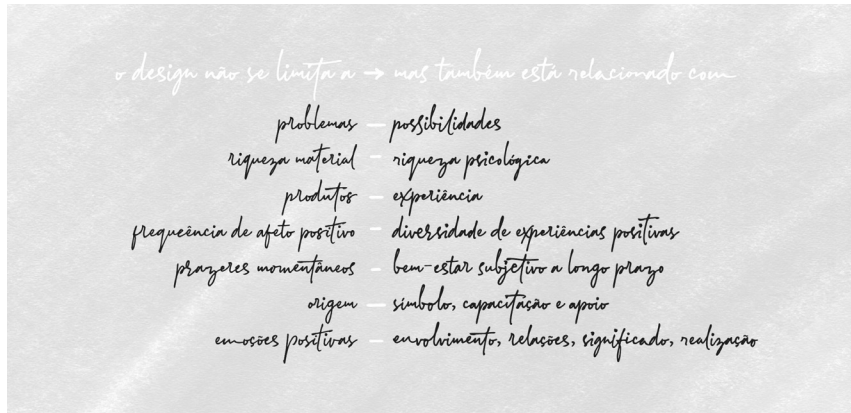 o design não se limita a → mas também está relacionado com
problemas — possibilidades
riqueza material - riqueza psicológica
produtos — experiência
frequeência de afeto positivo - diversidade de experiências positivas
prazeres momentâneos - bem-estar subjetivo a longo prazo
origem — símbolo, capacitação e apoio
emoções positivas - envolvimento, relações, significado, realização